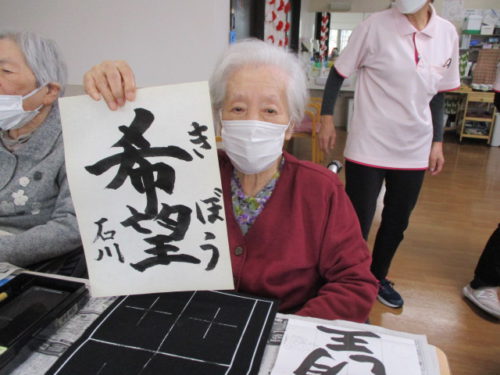 希望
きぼう
石川